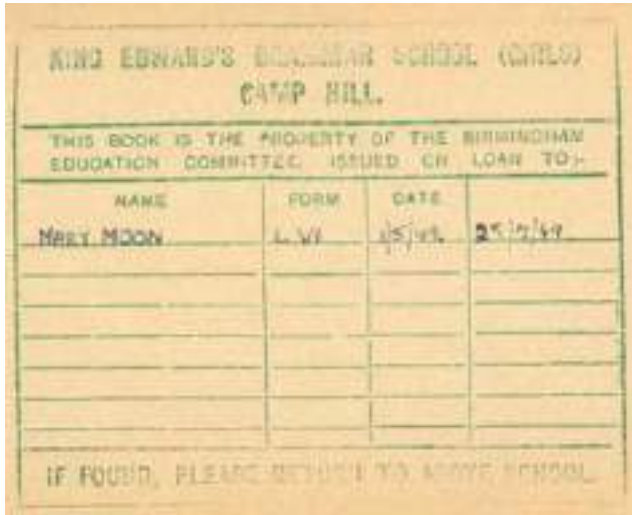 KING EDWARD'S GRAMMAR SCHOOL (GIRLS)
CAMP HILL.
THIS BOOK IS THE PROPERTY OF THE BIRMINGHAM
EDUCATION COMMITTEE ISSUED ON LOAN TO:-
NAME FORM DATE
MARY MOON L VI 25/7/49
IF FOUND, PLEASE RETURN TO ABOVE SCHOOL.